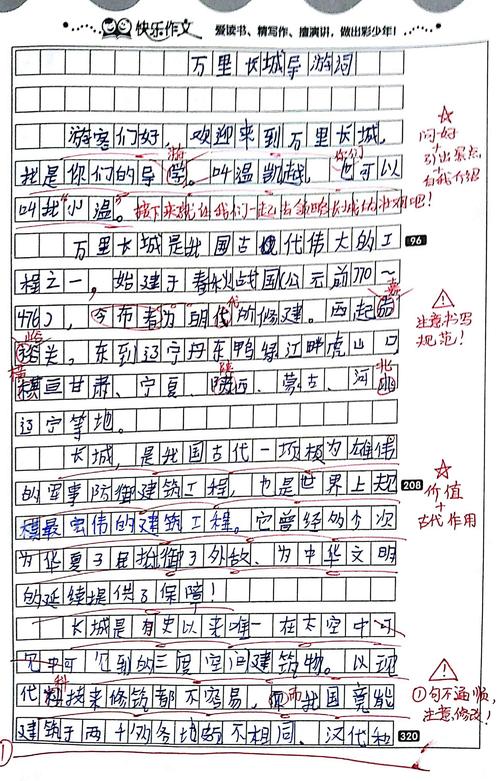 快乐作文
爱读书、精写作、擅演讲，做出彩少年！
万里长城导游词
游客们好，欢迎来到万里长城，
我是你们的导学。叫温凯越，也可以
游
你们
叫我"小温"。接下来就让我们一起去领略长城的壮观吧！
☆
问好
+
引出景点
+
自我介绍
万里长城是我国古代伟大的工
96
程之一，始建于春秋战国(公元前770～
476)，今布者为明代所修建。西起
代
嘉
峪关，东到辽宁丹东鸭绿江畔虎山口，
峪
注意书写
规范！
横亘甘肃、宁夏、陕西、蒙古、河
横
陕
北
辽宁等地。
长城，是我国古代一项极为雄伟
的军事防御建筑工程，也是世界上规
208
模最宏伟的建筑工程。它曾经的个次
☆
价值
+
古代作用
为华夏子民抵御了外敌，为中华文明
的延续提供了保障！
长城是有史以来唯一在太空中可
见中可见到的三度空间建筑物。以现
代科技来修筑都不容易，而我国竟能
科
而
①句不通顺，
注意修改！
建筑于两千多各地略不相同，汉代和
320
①